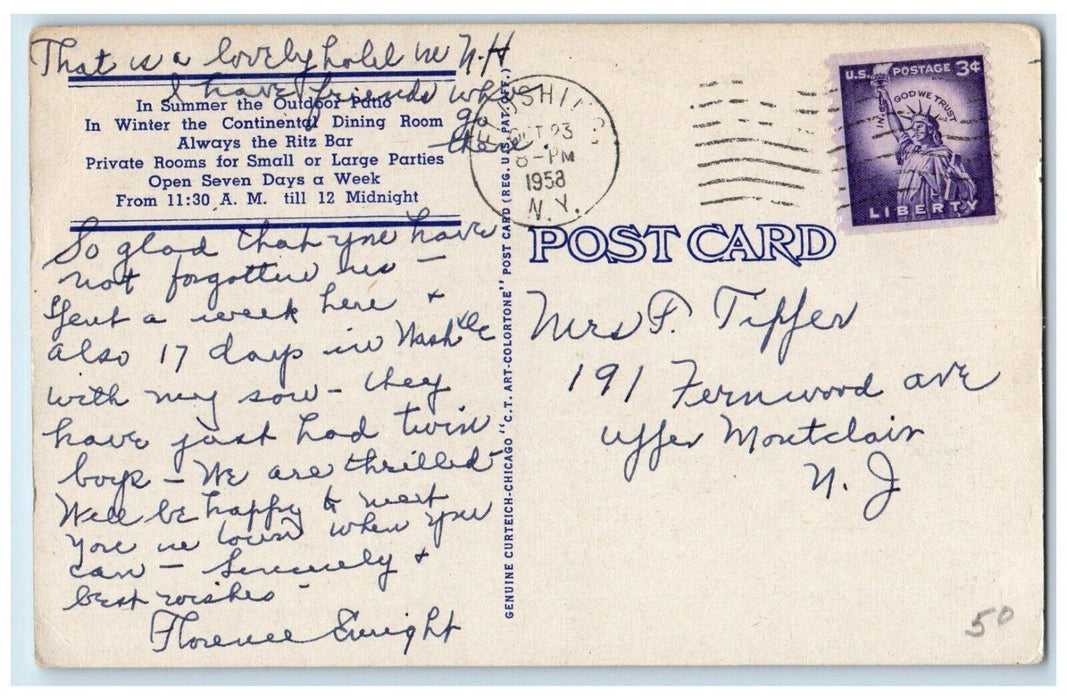 That is a lovely hotel in N.H
I have friends who
go
there.
In Summer the Outdoor Patio
In Winter the Continental Dining Room
Always the Ritz Bar
Private Rooms for Small or Large Parties
Open Seven Days a Week
From 11:30 A. M. till 12 Midnight
So glad that you have
not forgotten us —
Spent a week here +
also 17 days in Nashville
with my son - they
have just had twin
boys — We are thrilled
Will be happy to meet
you in town when you
can — Sincerely +
best wishes -
Florence Enright
GENUINE CURTEICH-CHICAGO "C.T. ART-COLORTONE" POST CARD (REG. U.S. PAT. OFF.)
OCT 23
8-PM
1958
N.Y.
U.S. POSTAGE 3¢
IN GOD WE TRUST
LIBERTY
POST CARD
Mrs F. Tipper
191 Fernwood ave
Upper Montclair
N. J
50